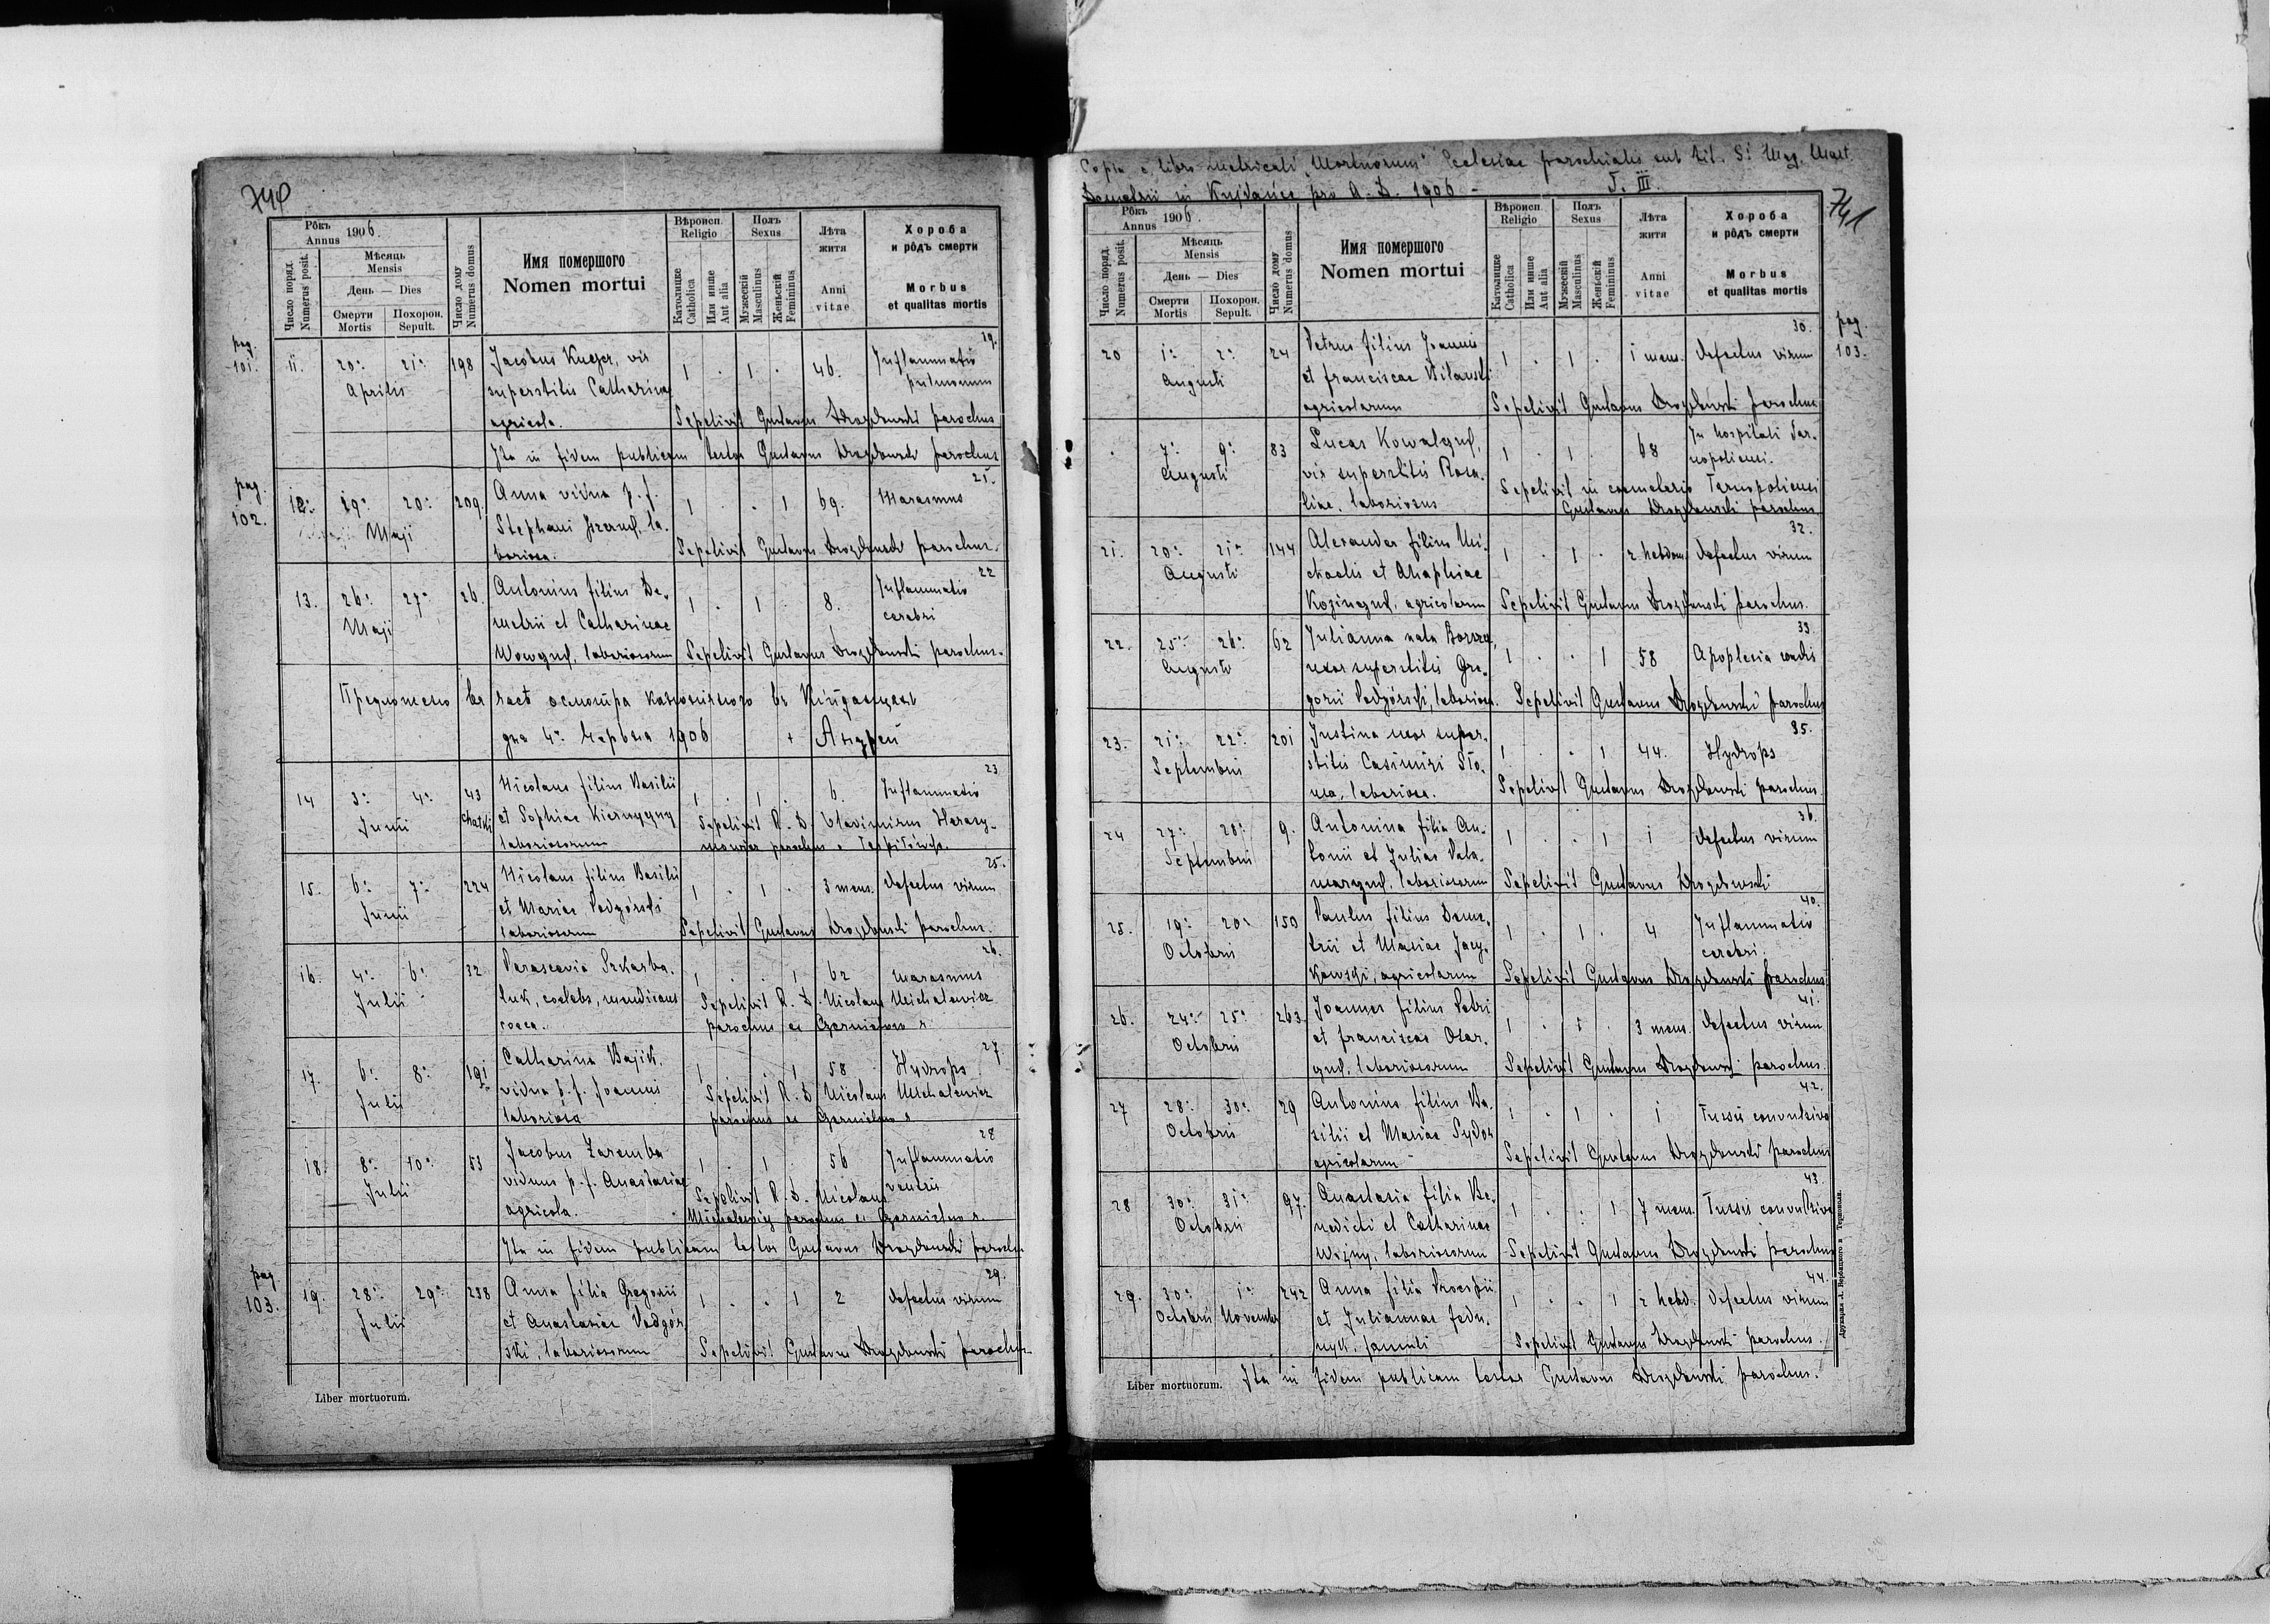 740
Рôкъ 1906.
Annus
Число поряд.
Numerus posit.
Мѣсяць
Mensis
День — Dies
Смерти
Mortis
Похорон.
Sepult.
Число дому
Numerus domus
Имя помершого
Nomen mortui
Вѣроисп.
Religio
Католицке
Catholica
Или инше
Aut alia
Полъ
Sexus
Мужескій
Masculinus
Женьскій
Femininus
Лѣта
житя
Anni
vitae
Хороба
и рôдъ смерти
Morbus
et qualitas mortis
pag. 101.
19.
11. 20. 21. 198 Jacobus vir 1 . 1 . 46. Inflammatio
Aprilis superstitis Catharinae pulmonum
agricola. Sepelivit Gustavus Drozdowski parochus
Ita in fidem publicam testor Gustavus Drozdowski parochus
pag. 102.
21.
12. 19. 20. 209. Anna vidua p. f. 1 . . 1 69. Marasmus
Maji Stephani la-
boriosa. Sepelivit Gustavus Drozdowski parochus.
22
13. 26. 27. 26. Antonius filius De- 1 . 1 . 8. Inflammatio
Maji metrii et Catharinae cerebri
laboriosorum Sepelivit Gustavus Drozdowski parochus.
Предложено въ часѣ осмотра каноничного въ
дня 4. Червня 1906 + Андрей
23
14 3. 4. 43 Nicolaus filius Basilii 1 . 1 . 6. Inflammatio
Junii chatki et Sophiae Sepelivit R. D. Vladimirus
laboriosorum parochus
25.
15. 6. 7. 224 Nicolaus filius Basilii 1 . 1 . 3 mens. defectus virium
Junii et Mariae Podgórski
laboriosorum Sepelivit Gustavus Drozdowski parochus.
26.
16. 4. 6. 32 Parascevia Szkarba- 1 . . 1 62 marasmus
Julii luk, coelebs, mendicans Sepelivit R. D. Nicolaus Michalewicz
coeca. parochus
27
17. 6. 8. 191 Catharina Bajik, 1 . . 1 58 Hydrops
Julii vidua p. f. Joannis Sepelivit R. D. Nicolaus Michalewicz
laboriosa parochus
28
18. 8. 10. 53 Jacobus Zaremba 1 . 1 . 56 Inflammatio
Julii viduus p. f. Anastasiae Sepelivit R. D. Nicolaus ventris
agricola. Michalewicz parochus
Ita in fidem publicam testor Gustavus Drozdowski parochus
pag. 103.
29.
19. 28. 29. 238 Anna filia Gregorii 1 . . 1 2 defectus virium
Julii et Anastasiae Podgór-
ski, laboriosorum Sepelivit Gustavus Drozdowski parochus
Liber mortuorum.
Copia e libro metricali "Mortuorum" Ecclesiae parochialis sub tit. S. Mag. Mart.
Demetrii in pro A. D. 1906 - T. III.
741
Рôкъ 1906.
Annus
Число поряд.
Numerus posit.
Мѣсяць
Mensis
День — Dies
Смерти
Mortis
Похорон.
Sepult.
Число дому
Numerus domus
Имя помершого
Nomen mortui
Вѣроисп.
Religio
Католицке
Catholica
Или инше
Aut alia
Полъ
Sexus
Мужескій
Masculinus
Женьскій
Femininus
Лѣта
житя
Anni
vitae
Хороба
и рôдъ смерти
Morbus
et qualitas mortis
pag. 103.
30.
20 1. 2. 24 Petrus filius Joannis 1 . 1 . 1 mens. defectus virium
Augusti et Franciscae Bilawski
agricolarum Sepelivit Gustavus Drozdowski parochus
. 7. 9. 83 Lucas Kowalczuk, 1 . 1 . 68 In hospitali Tar-
Augusti vir superstitis Rosa- nopoliensi.
liae, laboriosus Sepelivit in coemeterio Tarnopoliensi
Gustavus Drozdowski parochus
32.
21. 20. 21. 144 Alexander filius Mi- 1 . 1 . 2 hebdom. defectus virium
Augusti chaelis et Ahaphiae
agricolarum Sepelivit Gustavus Drozdowski parochus.
33.
22. 25. 26. 62 Julianna nata 1 . . 1 58 Apoplexia cordis
Augusti uxor superstitis Gre-
gorii Podgórski, laboriosa. Sepelivit Gustavus Drozdowski parochus
35.
23. 21. 22. 201 Justina uxor super- 1 . . 1 44. Hydrops
Septembris stitis Casimiri
laboriosa. Sepelivit Gustavus Drozdowski parochus.
36.
24 27. 28. 9. Antonina filia An- 1 . . 1 1 defectus virium
Septembris tonii et Juliae Pala-
marczuk, laboriosorum Sepelivit Gustavus Drozdowski
40.
25. 19. 20. 150 Paulus filius Deme- 1 . 1 . 4 Inflammatio
Octobris trii et Mariae Jacy- cerebri.
kowski, agricolarum Sepelivit Gustavus Drozdowski parochus
41.
26. 24. 25. 263. Joannes filius Petri 1 . 1 . 3 mens. defectus virium
Octobris et Franciscae
laboriosorum Sepelivit Gustavus Drozdowski parochus.
42.
27 28. 30. 29 Antonius filius Ba- 1 . 1 . 1 Tussis convulsiva
Octobris silii et Mariae Sydor
agricolarum Sepelivit Gustavus Drozdowski parochus
43.
28 30. 31. 97. Anastasia filia Be- 1 . . 1 7 mens. Tussis convulsiva
Octobris nedicti et Catharinae
laboriosorum Sepelivit Gustavus Drozdowski parochus
44.
29. 30. 1. 242 Anna filia Procopii 1 . . 1 2 hebd. defectus virium
Octobris Novembris et Juliannae Fedu-
Sepelivit Gustavus Drozdowski parochus.
Liber mortuorum. Ita in fidem publicam testor Gustavus Drozdowski parochus.